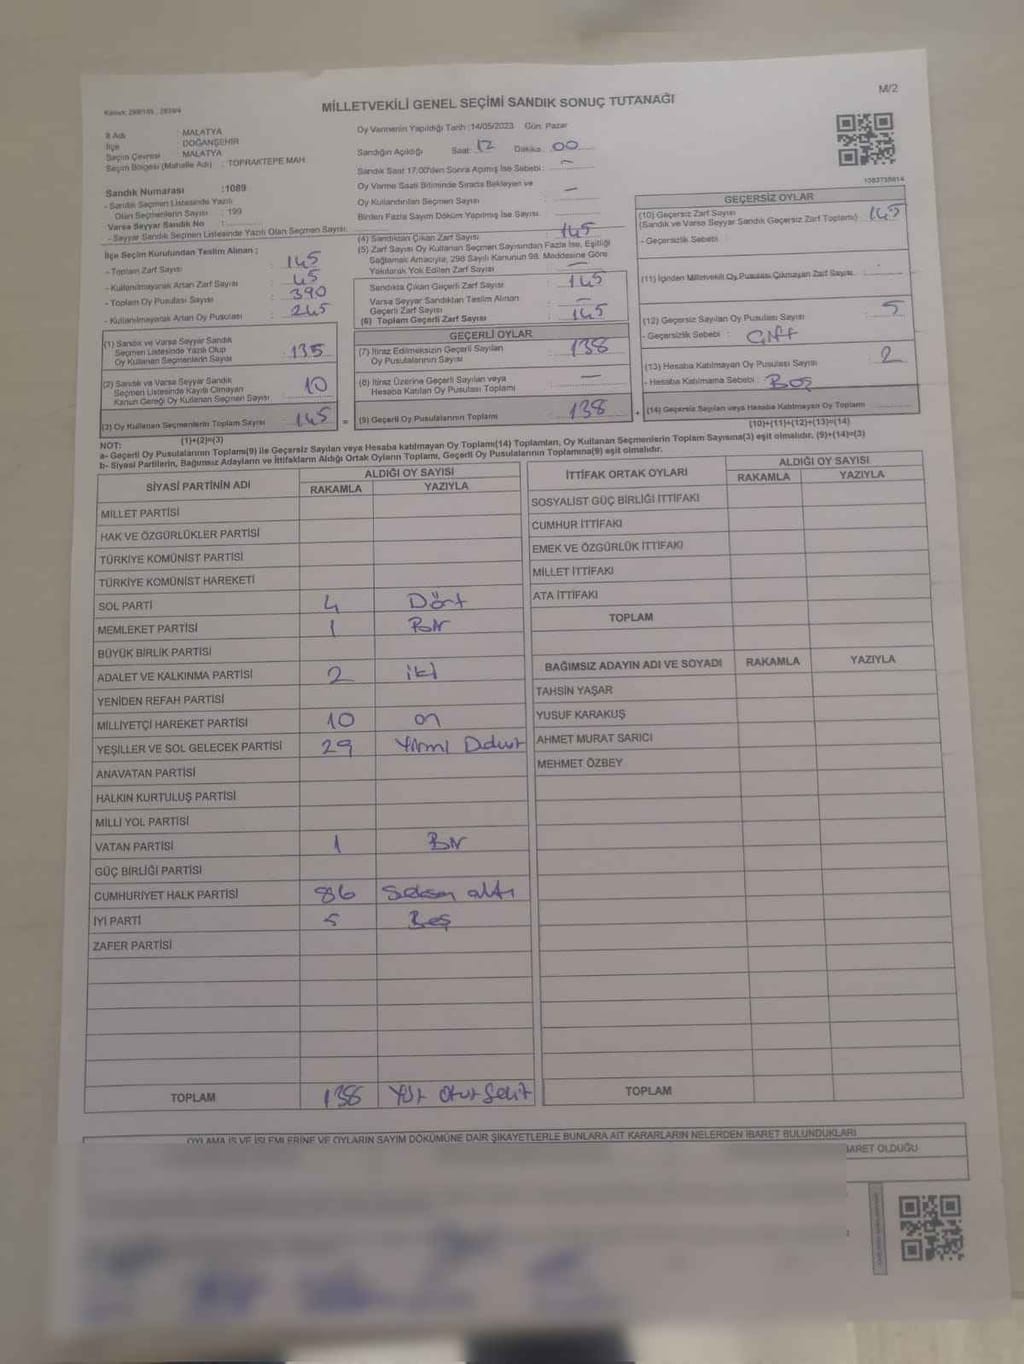 MİLLETVEKİLİ GENEL SEÇİMİ SANDIK SONUÇ TUTANAĞI
M/2
İl Adı : MALATYA
İlçe : DOĞANŞEHİR
Seçim Çevresi : MALATYA
Seçim Bölgesi (Mahalle Adı) : TOPRAKTEPE MAH.
Oy Vermenin Yapıldığı Tarih :14/05/2023 Gün: Pazar
Sandığın Açıldığı Saat: 12 Dakika: 00
Sandık Saat 17:00'den Sonra Açılmış İse Sebebi : –
Oy Verme Saati Bitiminde Sırada Bekleyen ve
Oy Kullandırılan Seçmen Sayısı : –
Birden Fazla Sayım Döküm Yapılmış İse Sayısı :
Sandık Numarası :1089
- Sandık Seçmen Listesinde Yazılı
Olan Seçmenlerin Sayısı : 199
Varsa Seyyar Sandık No :
- Seyyar Sandık Seçmen Listesinde Yazılı Olan Seçmen Sayısı:
İlçe Seçim Kurulundan Teslim Alınan :
- Toplam Zarf Sayısı : 145
- Kullanılmayarak Artan Zarf Sayısı : 45
- Toplam Oy Pusulası Sayısı : 390
- Kullanılmayarak Artan Oy Pusulası : 245
(1) Sandık ve Varsa Seyyar Sandık
Seçmen Listesinde Yazılı Olup
Oy Kullanan Seçmenlerin Sayısı : 135
(2) Sandık ve Varsa Seyyar Sandık
Seçmen Listesinde Kayıtlı Olmayan
Kanun Gereği Oy Kullanan Seçmen Sayısı : 10
(3) Oy Kullanan Seçmenlerin Toplam Sayısı : 145 =
(4) Sandıktan Çıkan Zarf Sayısı : 145
(5) Zarf Sayısı Oy Kullanan Seçmen Sayısından Fazla İse, Eşitliği
Sağlamak Amacıyla, 298 Sayılı Kanunun 98. Maddesine Göre
Yakılarak Yok Edilen Zarf Sayısı : –
Sandıkta Çıkan Geçerli Zarf Sayısı : 145
Varsa Seyyar Sandıktan Teslim Alınan
Geçerli Zarf Sayısı : –
(6) Toplam Geçerli Zarf Sayısı : 145
GEÇERLİ OYLAR
(7) İtiraz Edilmeksizin Geçerli Sayılan
Oy Pusulalarının Sayısı : 138
(8) İtiraz Üzerine Geçerli Sayılan veya
Hesaba Katılan Oy Pusulası Toplamı : –
(9) Geçerli Oy Pusulalarının Toplamı : 138 +
1583738814
GEÇERSİZ OYLAR
(10) Geçersiz Zarf Sayısı
(Sandık ve Varsa Seyyar Sandık Geçersiz Zarf Toplamı) : 145
- Geçersizlik Sebebi :
(11) İçinden Milletvekili Oy Pusulası Çıkmayan Zarf Sayısı :
(12) Geçersiz Sayılan Oy Pusulası Sayısı : 5
- Geçersizlik Sebebi :
(13) Hesaba Katılmayan Oy Pusulası Sayısı : 2
- Hesaba Katılmama Sebebi : Boş
(14) Geçersiz Sayılan veya Hesaba Katılmayan Oy Toplamı :
(10)+(11)+(12)+(13)=(14)
NOT: (1)+(2)=(3)
a- Geçerli Oy Pusulalarının Toplamı(9) ile Geçersiz Sayılan veya Hesaba katılmayan Oy Toplamı(14) Toplamları, Oy Kullanan Seçmenlerin Toplam Sayısına(3) eşit olmalıdır. (9)+(14)=(3)
b- Siyasi Partilerin, Bağımsız Adayların ve İttifakların Aldığı Ortak Oyların Toplamı, Geçerli Oy Pusulalarının Toplamına(9) eşit olmalıdır.
SİYASİ PARTİNİN ADI ALDIĞI OY SAYISI
RAKAMLA YAZIYLA
MİLLET PARTİSİ
HAK VE ÖZGÜRLÜKLER PARTİSİ
TÜRKİYE KOMÜNİST PARTİSİ
TÜRKİYE KOMÜNİST HAREKETİ
SOL PARTİ 4 Dört
MEMLEKET PARTİSİ 1 Bir
BÜYÜK BİRLİK PARTİSİ
ADALET VE KALKINMA PARTİSİ 2 iki
YENİDEN REFAH PARTİSİ
MİLLİYETÇİ HAREKET PARTİSİ 10 on
YEŞİLLER VE SOL GELECEK PARTİSİ 29 Yirmi Dokuz
ANAVATAN PARTİSİ
HALKIN KURTULUŞ PARTİSİ
MİLLİ YOL PARTİSİ
VATAN PARTİSİ 1 Bir
GÜÇ BİRLİĞİ PARTİSİ
CUMHURİYET HALK PARTİSİ 86 Seksen altı
İYİ PARTİ 5 Beş
ZAFER PARTİSİ
TOPLAM 138 Yüz Otuz Sekiz
İTTİFAK ORTAK OYLARI ALDIĞI OY SAYISI
RAKAMLA YAZIYLA
SOSYALİST GÜÇ BİRLİĞİ İTTİFAKI
CUMHUR İTTİFAKI
EMEK VE ÖZGÜRLÜK İTTİFAKI
MİLLET İTTİFAKI
ATA İTTİFAKI
TOPLAM
BAĞIMSIZ ADAYIN ADI VE SOYADI RAKAMLA YAZIYLA
TAHSİN YAŞAR
YUSUF KARAKUŞ
AHMET MURAT SARICI
MEHMET ÖZBEY
TOPLAM
OYLAMA İŞ VE İŞLEMLERİNE VE OYLARIN SAYIM DÖKÜMÜNE DAİR ŞİKAYETLERLE BUNLARA AİT KARARLARIN NELERDEN İBARET BULUNDUKLARI
BARET OLDUĞU